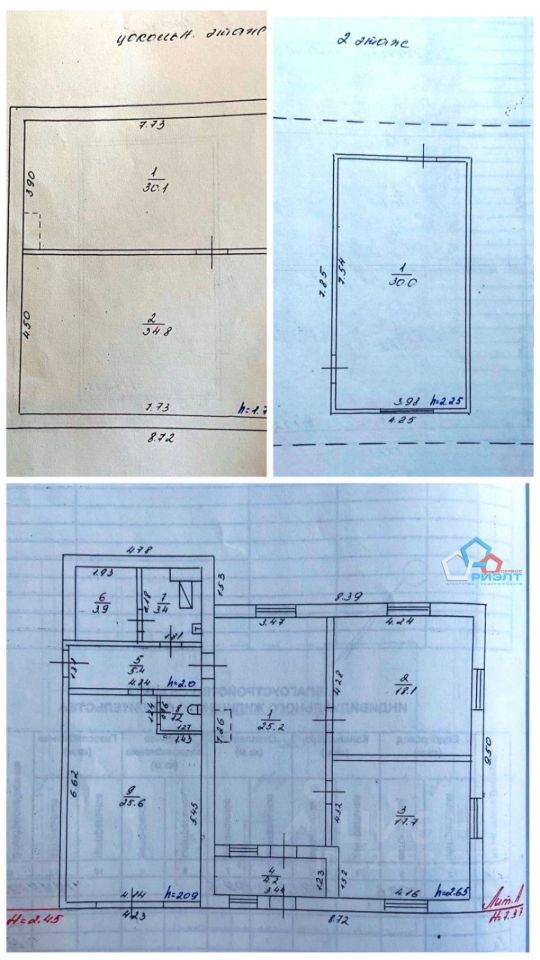 цокольн. этаж
7.73
3.90
1
30.1
4.50
2
34.8
7.73
h=1.7
8.72
2 этаж
7.85
7.54
1
30.0
3.98
h=2.25
4.25
ПЕРВОЕ
РИЭЛТ
4.78
1.93
6
3.9
2.18
7
3.4
1.81
1.53
8.39
3.47
4.24
1.31
5
5.4
4.24
h=2.0
4.28
2
18.1
1
25.2
7.26
8
1.2
1.24
0.96
1.27
1.43
9.50
6.62
9
25.6
5.45
4.32
3
17.7
4
4.2
3.44
1.23
1.32
4.14
h=2.09
4.23
4.16
h=2.65
8.72
H=2.45
Лит.А
H=7.37